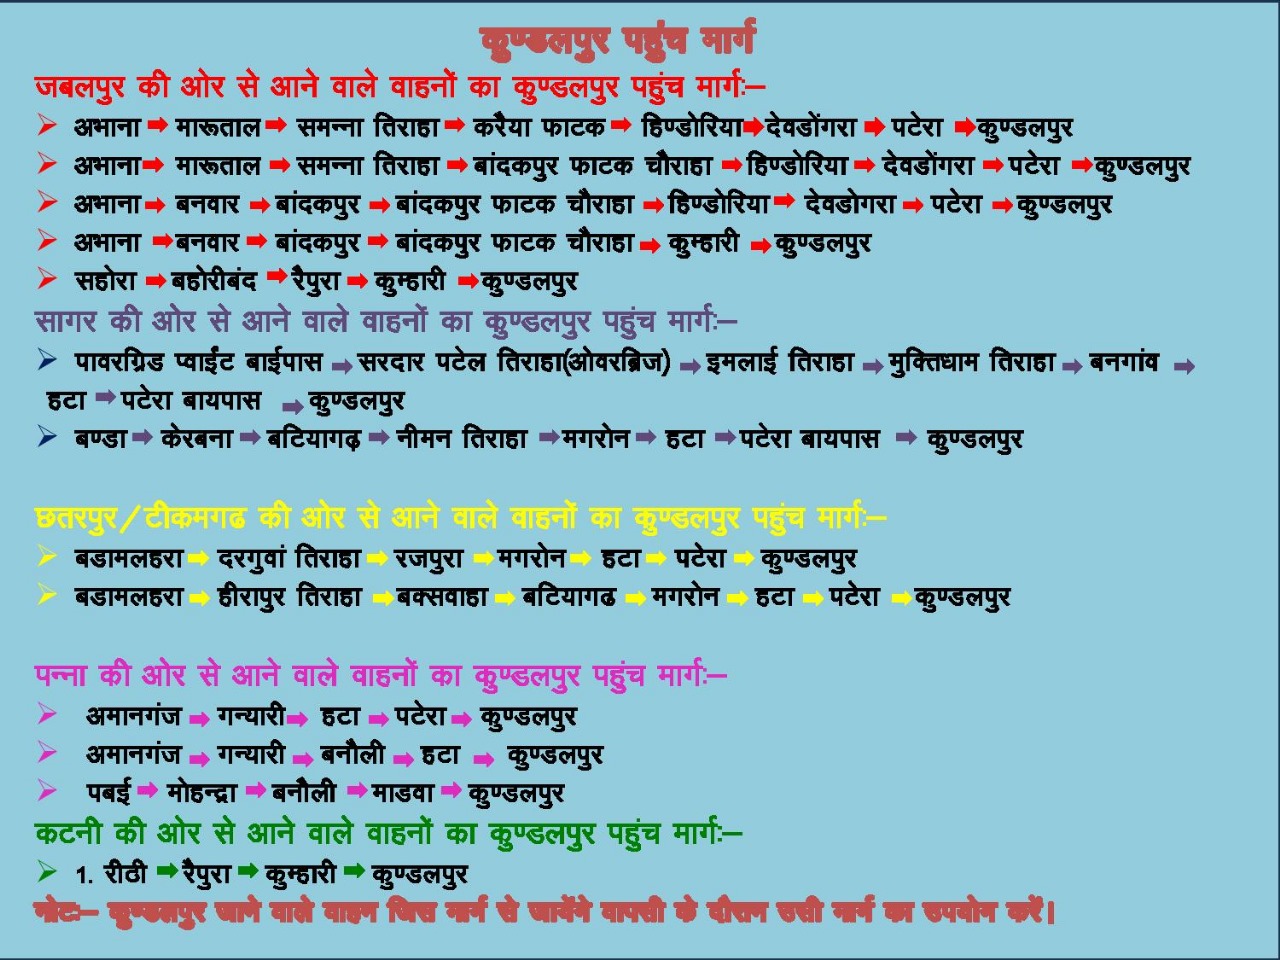 कुण्डलपुर पहुंच मार्ग
जबलपुर की ओर से आने वाले वाहनों का कुण्डलपुर पहुंच मार्ग:–
➢ अभाना ➡ मारूताल ➡ समन्ना तिराहा ➡ करैया फाटक ➡ हिण्डोरिया ➡ देवडोंगरा ➡ पटेरा ➡ कुण्डलपुर
➢ अभाना ➡ मारूताल ➡ समन्ना तिराहा ➡ बांदकपुर फाटक चौराहा ➡ हिण्डोरिया ➡ देवडोंगरा ➡ पटेरा ➡ कुण्डलपुर
➢ अभाना ➡ बनवार ➡ बांदकपुर ➡ बांदकपुर फाटक चौराहा ➡ हिण्डोरिया ➡ देवडोगरा ➡ पटेरा ➡ कुण्डलपुर
➢ अभाना ➡ बनवार ➡ बांदकपुर ➡ बांदकपुर फाटक चौराहा ➡ कुम्हारी ➡ कुण्डलपुर
➢ सहोरा ➡ बहोरीबंद ➡ रैपुरा ➡ कुम्हारी ➡ कुण्डलपुर
सागर की ओर से आने वाले वाहनों का कुण्डलपुर पहुंच मार्ग:–
➢ पावरग्रिड प्वाईंट बाईपास ➡ सरदार पटेल तिराहा(ओवरब्रिज) ➡ इमलाई तिराहा ➡ मुक्तिधाम तिराहा ➡ बनगांव ➡
हटा ➡ पटेरा बायपास ➡ कुण्डलपुर
➢ बण्डा ➡ केरबना ➡ बटियागढ़ ➡ नीमन तिराहा ➡ मगरोन ➡ हटा ➡ पटेरा बायपास ➡ कुण्डलपुर
छतरपुर/टीकमगढ की ओर से आने वाले वाहनों का कुण्डलपुर पहुंच मार्ग:–
➢ बडामलहरा ➡ दरगुवां तिराहा ➡ रजपुरा ➡ मगरोन ➡ हटा ➡ पटेरा ➡ कुण्डलपुर
➢ बडामलहरा ➡ हीरापुर तिराहा ➡ बक्सवाहा ➡ बटियागढ ➡ मगरोन ➡ हटा ➡ पटेरा ➡ कुण्डलपुर
पन्ना की ओर से आने वाले वाहनों का कुण्डलपुर पहुंच मार्ग:–
➢ अमानगंज ➡ गन्यारी ➡ हटा ➡ पटेरा ➡ कुण्डलपुर
➢ अमानगंज ➡ गन्यारी ➡ बनौली ➡ हटा ➡ कुण्डलपुर
➢ पबई ➡ मोहन्द्रा ➡ बनौली ➡ माडवा ➡ कुण्डलपुर
कटनी की ओर से आने वाले वाहनों का कुण्डलपुर पहुंच मार्ग:–
➢ 1. रीठी ➡ रैपुरा ➡ कुम्हारी ➡ कुण्डलपुर
नोटः– कुण्डलपुर जाने वाले वाहन जिस मार्ग से जायेंगे वापसी के दौरान उसी मार्ग का उपयोग करें।